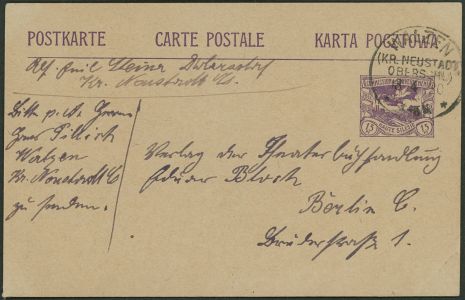 POSTKARTE CARTE POSTALE KARTA POCZTOWA
Abs. Emil Steiner
Kr. Neustadt
WALZEN
(KR. NEUSTADT
OBERSCHL.)
HAUTE SILÉSIE
15 15
Bitte p. A. Herrn
Walzen
Kr. Neustadt
zu senden.
Verlag der Theaterbuchhandlung
Eduard Bloch
Berlin C.
Brüderstraße 1.